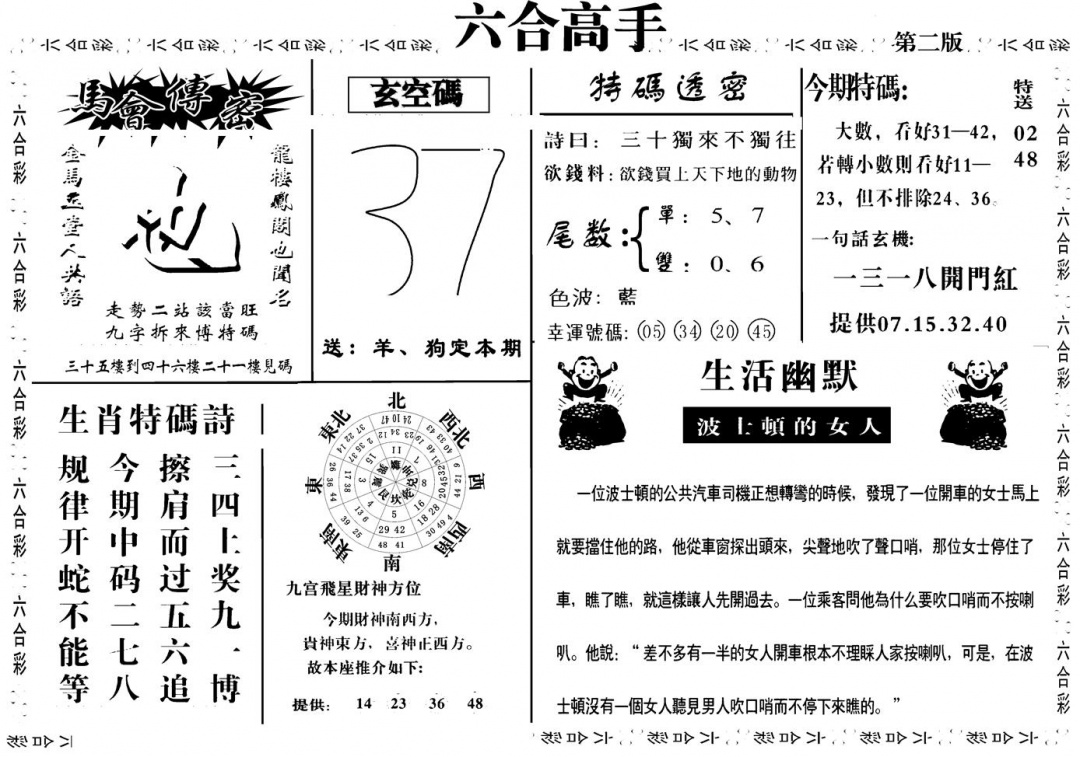 六合高手
第二版
六合彩 六合彩 六合彩 六合彩 六合彩 六合彩 六合彩
馬會傳密
金馬玉堂人共語
龍樓鳳閣也聞名
走勢二站該當旺
九字拆來博特碼
三十五樓到四十六樓二十一樓見碼
玄空碼
37
送：羊、狗定本期
特碼透密
詩曰：三十獨來不獨往
欲錢料：欲錢買上天下地的動物
尾数：
單：5、7
雙：0、6
色波：藍
幸運號碼：05 34 20 45
今期特碼：
特送
02
48
大數，看好31—42，
若轉小數則看好11—
23，但不排除24、36。
一句話玄機：
一三一八開門紅
提供07.15.32.40
生肖特碼詩
三四上奖九一博
擦肩而过五六追
今期中码二七八
规律开蛇不能等
北
西北
西
西南
南
東南
東
東北
九宫飛星財神方位
今期財神南西方，
貴神東方，喜神正西方。
故本座推介如下：
提供： 14 23 36 48
生活幽默
波士頓的女人
一位波士頓的公共汽車司機正想轉彎的時候，發現了一位開車的女士馬上
就要擋住他的路，他從車窗探出頭來，尖聲地吹了聲口哨，那位女士停住了
車，瞧了瞧，就這樣讓人先開過去。一位乘客問他為什么要吹口哨而不按喇
叭。他說：“差不多有一半的女人開車根本不理睬人家按喇叭，可是，在波
士頓沒有一個女人聽見男人吹口哨而不停下來瞧的。”